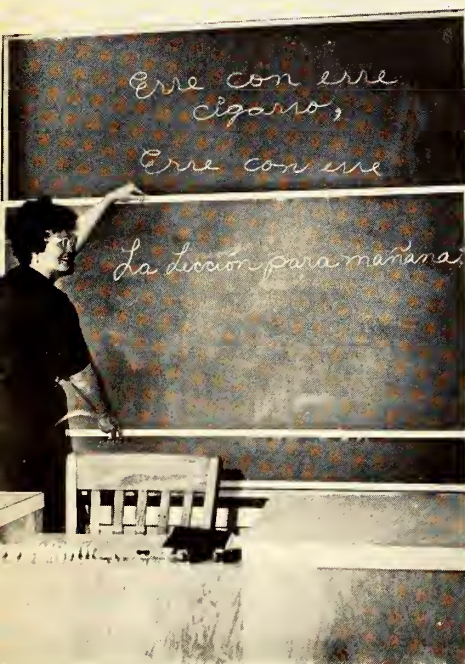 Erre con erre
cigarro,
Erre con erre
La Lección para mañana,